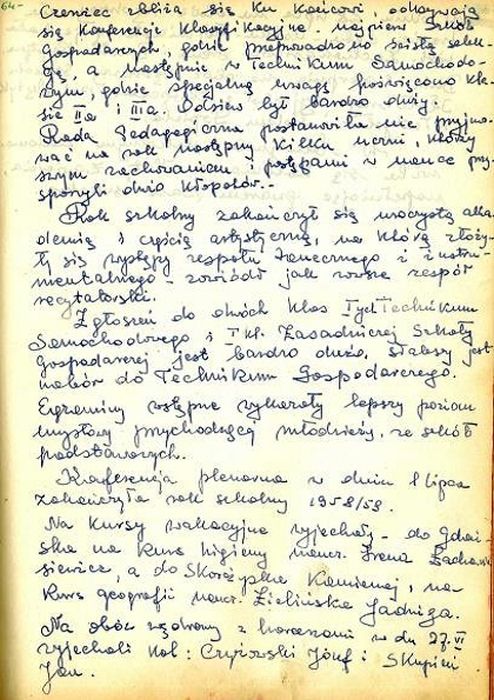 64-
Czerwiec zbliża się ku końcowi, odbywają
się Konferencje Klasyfikacyjne. najpierw Szkół
Gospodarczych, gdzie przeprowadzono ścisłą selek-
cję, a następnie w Technikum Samochodo-
wym, gdzie specjalną uwagę poświęcono kla-
sie IIa i IIIa. Odsiew był bardzo duży.
Rada Pedagogiczna postanowiła nie przyjmo-
wać na rok następny kilku uczni, którzy
swym zachowaniem i postępami w nauce przy-
sporzyli dużo kłopotów.-
Rok szkolny zakończył się uroczystą aka-
demią i częścią artystyczną, na którą złoży-
ły się występy zespołu tanecznego i instru-
mentalnego - zawiódł jak zawsze zespół
recytatorski.
Zgłoszeń do dwóch klas Iych Technikum
Samochodowego i I kl. Zasadniczej Szkoły
Gospodarczej jest bardzo dużo, słabszy jest
nabór do Technikum Gospodarczego.
Egzaminy wstępne wykazały lepszy poziom
umysłowy przychodzącej młodzieży, ze szkół
podstawowych.
Konferencja plenarna w dniu 1 lipca
zakończyła rok szkolny 1958/59.
Na kursy wakacyjne wyjechały - do Gdań-
ska na kurs higieny naucz. Irena
a do Skarżyska Kamiennej, na
kurs geografii naucz. Zielińska Jadwiga.
Na obóz wędrowny z harcerzami w dn 27.VI
wyjechali kol: Czyżowski Józef i Skupień
Jan.